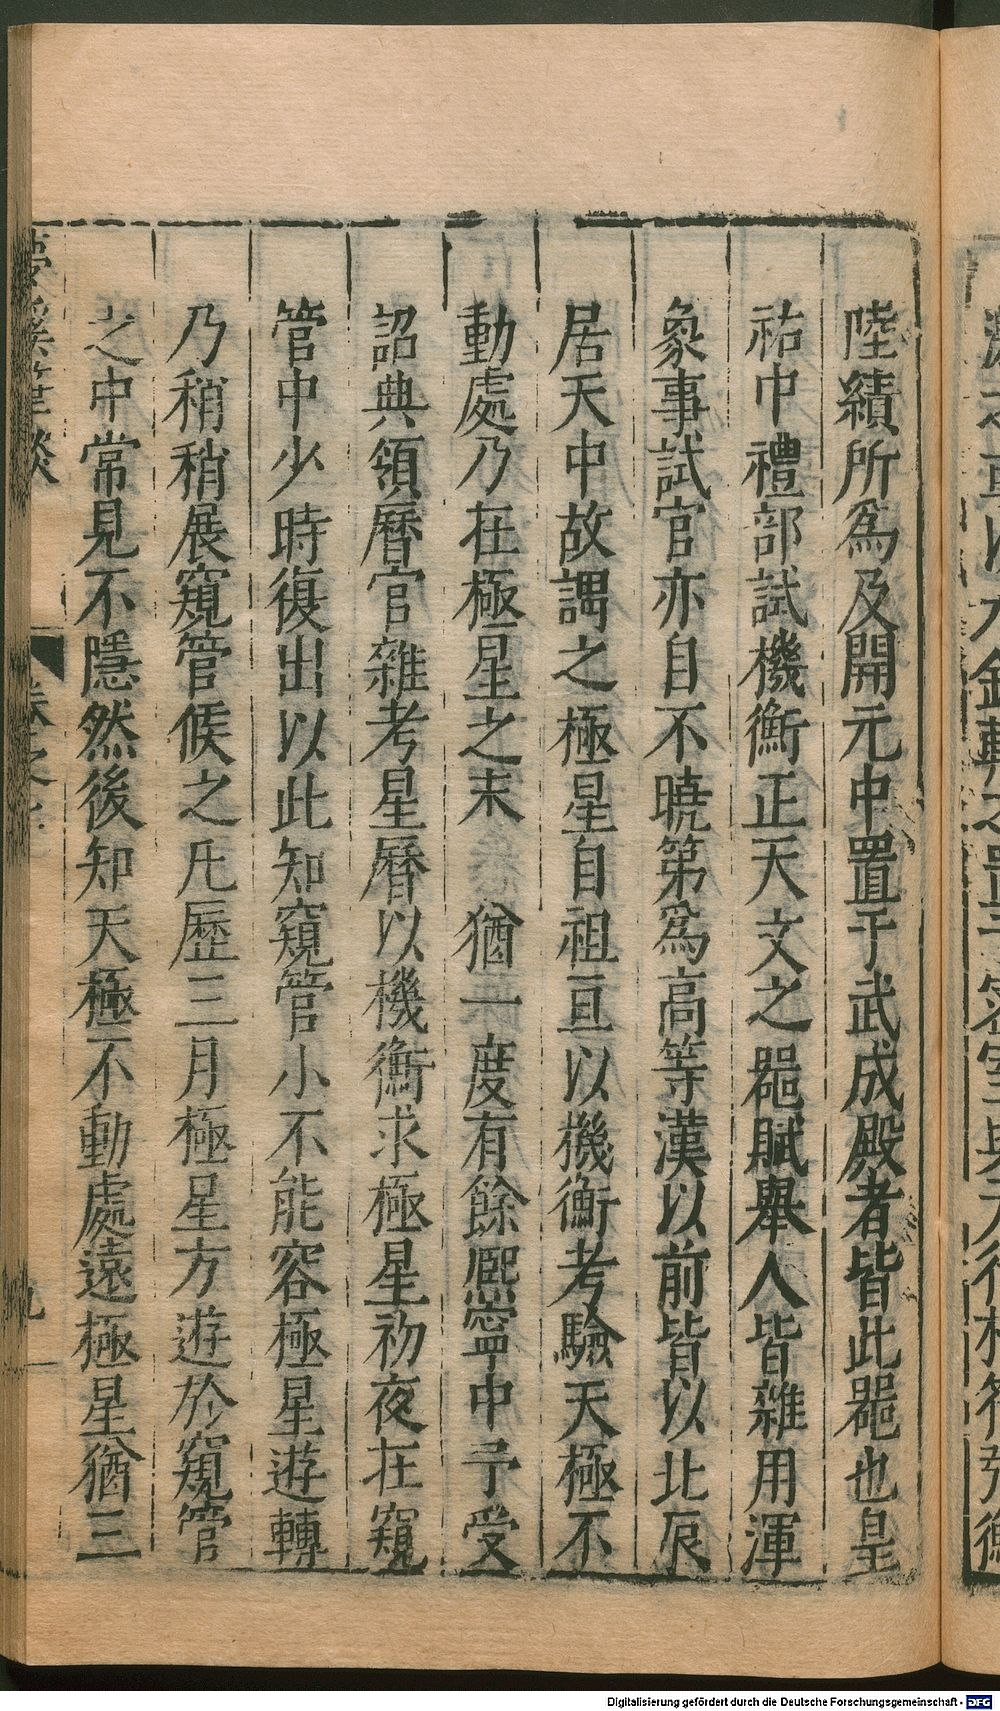 陸績所爲及開元中置于武成殿者皆此噐也皇
祐中禮部試機衡正天文之噐賦舉人皆雜用渾
象事試官亦自不曉第爲高等漢以前皆以北辰
居天中故謂之極星自祖亘以機衡考驗天極不
動處乃在極星之末猶一度有餘熈寧中予受
詔典領曆官雜考星曆以機衡求極星初夜在窺
管中少時復出以此知窺管小不能容極星遊轉
乃稍稍展窺管候之凡歷三月極星方遊於窺管
之中常見不隱然後知天極不動處遠極星猶三
夢溪筆談
卷之七
九
Digitalisierung gefördert durch die Deutsche Forschungsgemeinschaft - DFG